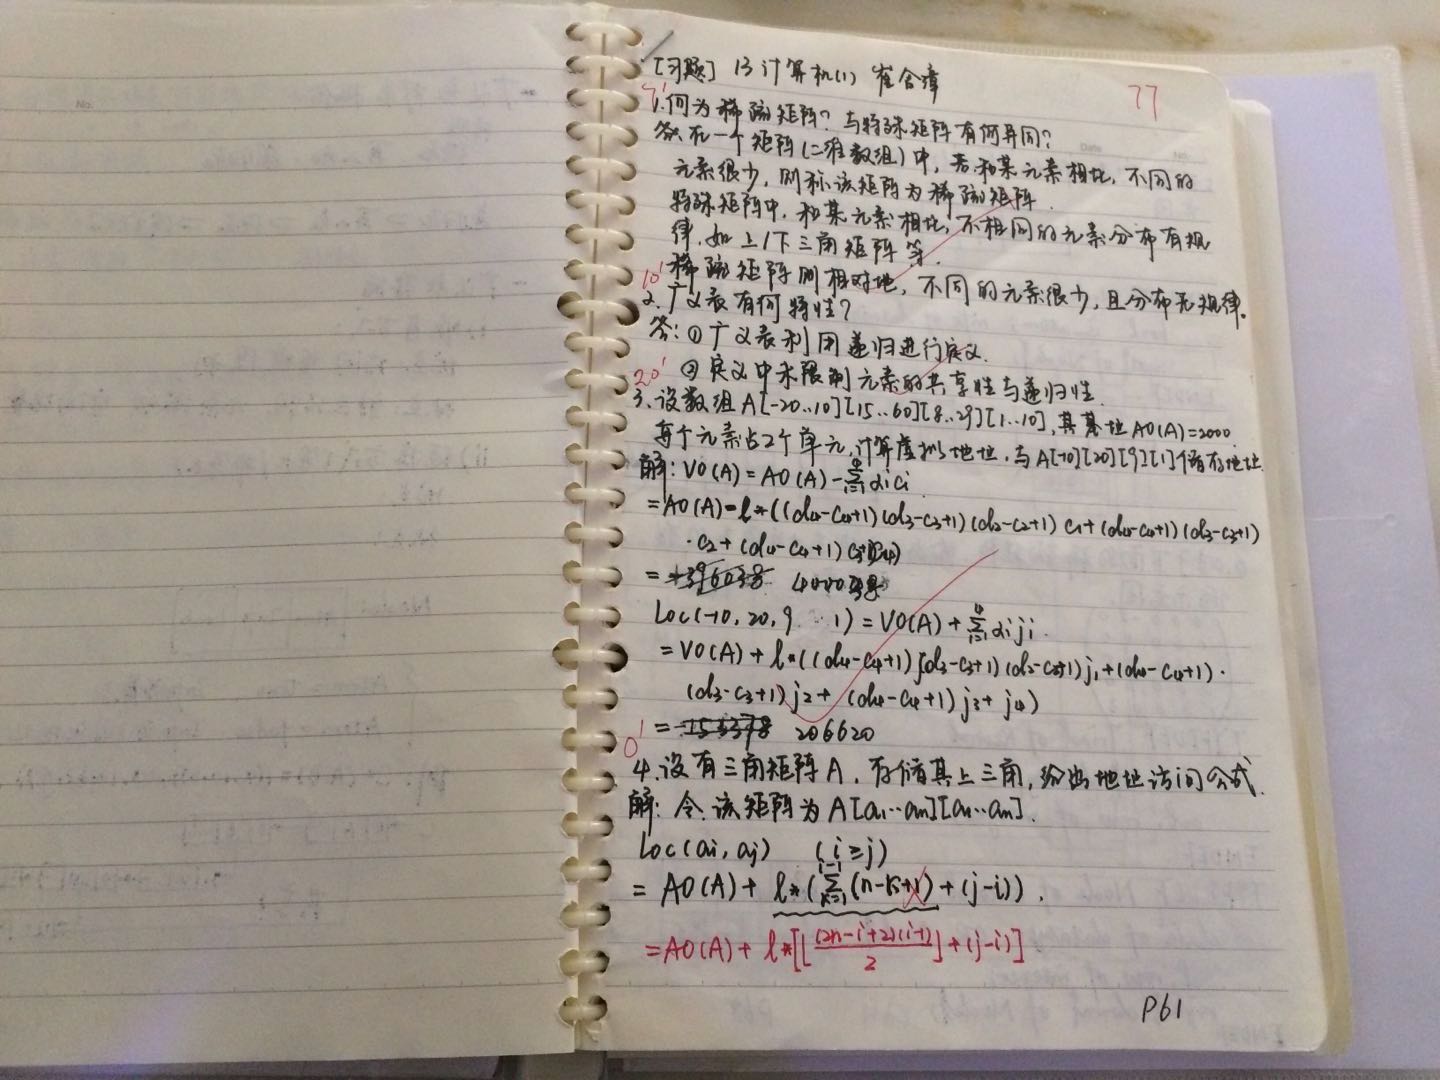 [习题] 13计算机(1) 崔含璋
77
7'
1.何为稀疏矩阵?与特殊矩阵有何异同?
答:在一个矩阵(二维数组)中,若和某元素相比,不同的
元素很少,则称该矩阵为稀疏矩阵.
特殊矩阵中,和某元素相比,不相同的元素分布有规
律.如上/下三角矩阵等.
稀疏矩阵则相对地,不同的元素很少,且分布无规律.
10'
2.广义表有何特性?
答:①广义表利用递归进行定义.
②定义中未限制元素的共享性与递归性.
20'
3.设数组A[-20..10][15..60][8..29][1..10],其基址A0(A)=2000.
每个元素占2个单元,计算虚拟地址,与A[-10][20][9][1]储存地址.
解:V0(A)=A0(A)-∑αici
=A0(A)-l*((d4-c4+1)(d3-c3+1)(d2-c2+1)c1+(d4-c4+1)(d3-c3+1)
·c2+(d4-c4+1)c3+c4)
=
Loc(-10,20,9 1)=V0(A)+∑αiji.
=V0(A)+l*((d4-c4+1)(d3-c3+1)(d2-c2+1)j1+(d4-c4+1)·
(d3-c3+1)j2+(d4-c4+1)j3+j4)
= 206620
0'
4.设有三角矩阵A,存储其上三角,给出地址访问公式.
解:令该矩阵为A[a1..an][a1..an].
Loc(ai,aj) (i≥j)
=A0(A)+l*(∑(n-k+1)+(j-i)).
=A0(A)+l*[⌊(2n-i+2)(i-1)/2⌋+(j-i)]
P61